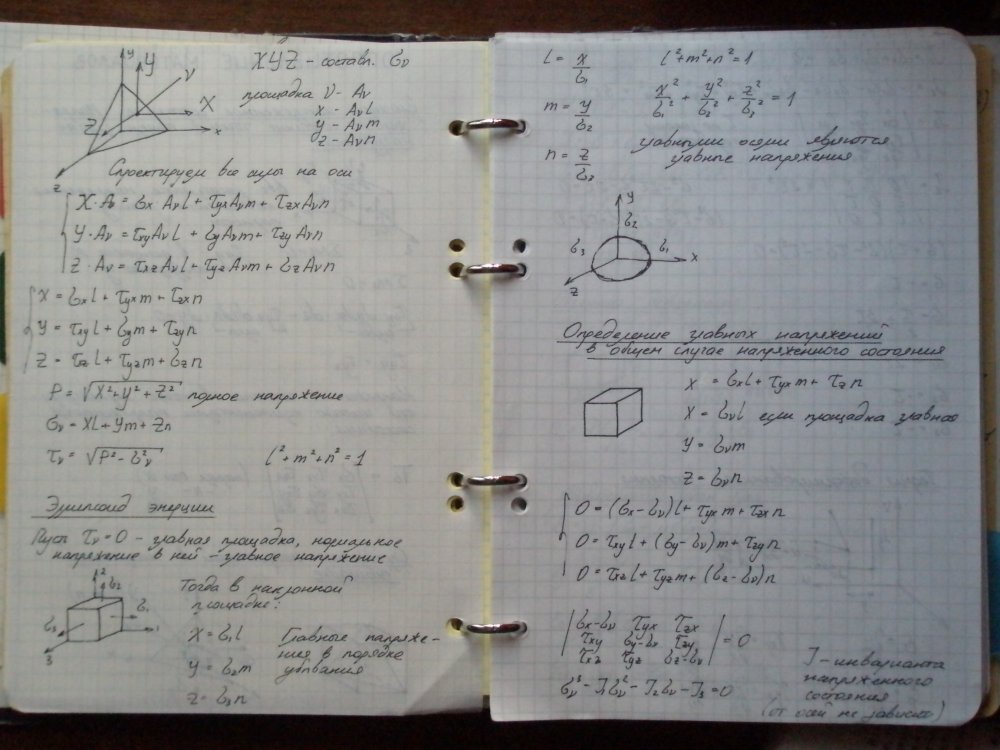 y
y
ν
X
x
Z
z
XYZ - составл. σν
площадка ν - Aν
x - Aνl
y - Aνm
z - Aνn
Спроектируем все силы на оси
X·Aν = σx Aνl + τyxAνm + τzxAνn
Y·Aν = τxyAνl + σyAνm + τzyAνn
Z·Aν = τxzAνl + τyzAνm + σzAνn
X = σxl + τyxm + τzxn
Y = τxyl + σym + τzyn
Z = τxzl + τyzm + σzn
P = √X²+Y²+Z² полное напряжение
σν = Xl + Ym + Zn
τν = √P² - σ²ν l²+m²+n²=1
Эллипсоид энерции
Пусть τν=0 - главная площадка, нормальное
напряжение в ней - главное напряжение
2
σ2
σ1
1
σ3
3
Тогда в наклонной
площадке:
X = σ1l
Y = σ2m
Z = σ3n
Главные напряже-
ния в порядке
убывания
l = x/σ1 l²+m²+n²=1
m = y/σ2 x²/σ1² + y²/σ2² + z²/σ3² = 1
n = z/σ3
главными осями являются
главные напряжения
y
σ2
σ3
σ1
x
z
Определение главных напряжений
в общем случае напряженного состояния
X = σxl + τyxm + τzxn
X = σνl если площадка главная
Y = σνm
Z = σνn
0 = (σx-σν)l + τyxm + τzxn
0 = τxyl + (σy-σν)m + τzyn
0 = τxzl + τyzm + (σz-σν)n
σx-σν τyx τzx
τxy σy-σν τzy = 0
τxz τyz σz-σν
σν³ - J1σν² - J2σν - J3 = 0
J - инварианта
напряженного
состояния
(от осей не зависит)